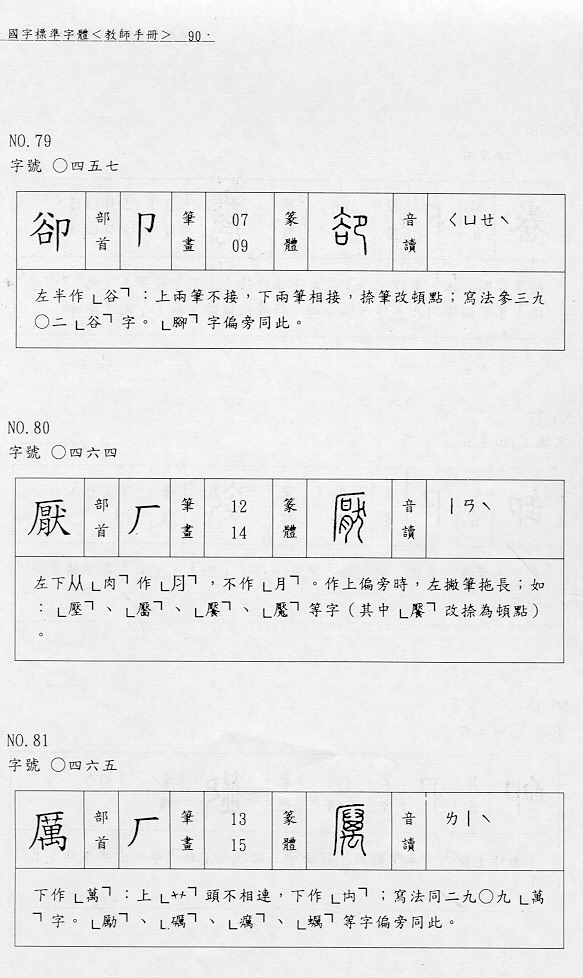 國字標準字體<教師手冊> 90.
NO.79
字號 ○四五七
卻 部首 卩 筆畫 07 09 篆體 音讀 ㄑㄩㄝˋ
左半作「谷」:上兩筆不接,下兩筆相接,捺筆改頓點;寫法參三九
○二「谷」字。「腳」字偏旁同此。
NO.80
字號 ○四六四
厭 部首 厂 筆畫 12 14 篆體 厭 音讀 ㄧㄢˋ
左下从「肉」作「⺼」,不作「月」。作上偏旁時,左撇筆拖長;如
:「壓」、「靨」、「饜」、「魘」等字(其中「饜」改捺為頓點)
。
NO.81
字號 ○四六五
厲 部首 厂 筆畫 13 15 篆體 厲 音讀 ㄌㄧˋ
下作「萬」:上「艹」頭不相連,下作「禸」;寫法同二九○九「萬
」字。「勵」、「礪」、「癘」、「蠣」等字偏旁同此。